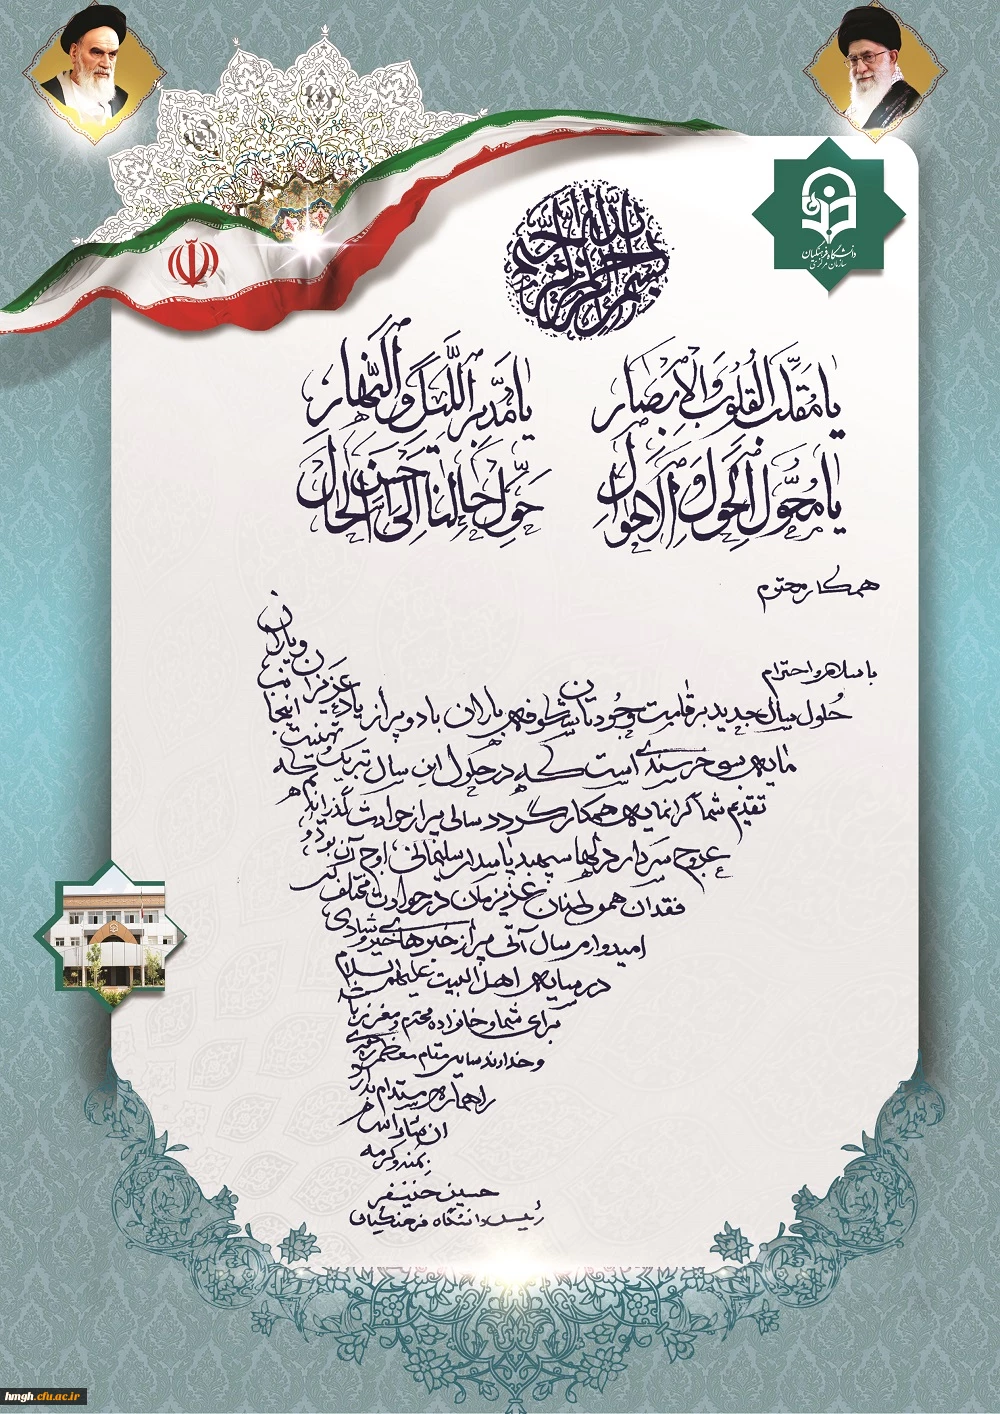 بسم الله الرحمن الرحیم
دانشگاه فرهنگیان
سازمان مرکزی
یا مقلب القلوب و الابصار یا مدبر اللیل و النهار
یا محول الحول و الاحوال حول حالنا الی احسن الحال
همکار محترم
با سلام و احترام
حلول سال جدید بر قامت وجودتان شکوفه باران باد و پر از یاد عزیزان و یاران
مایه بسی خرسندی است که در حلول این سال تبریک و تهنیت
تقدیم شما گرانمایه همکار گردد سالی پر از حوادث گذراندیم که
عروج سردار دلها سپهبد پاسدار سلیمانی اوج آن بود و
فقدان هموطنان عزیزمان در حوادث مختلف
امیدوارم سال آتی پر از خبرهای خیر و شادی
در سایه اهل البیت علیهم السلام
برای شما و خانواده محترم و معزز باشد
و خداوند سایه مقام معظم رهبری
را همواره مستدام بدارد
ان شاء الله
بمنه و کرمه
حسین خنیفر
رئیس دانشگاه فرهنگیان
hmgh.cfu.ac.ir